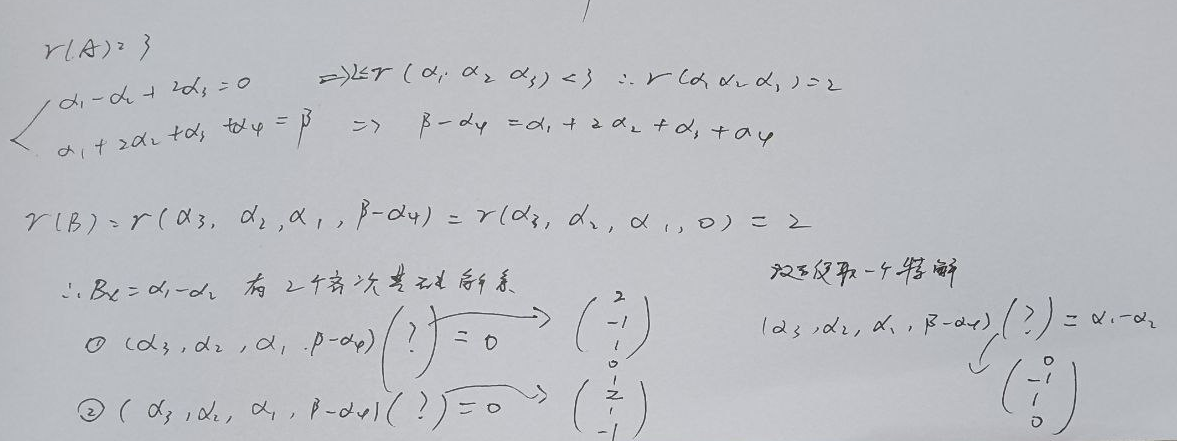 r(A)=3
α₁-α₂+2α₃=0 ⇒ 2≤r(α₁ α₂ α₃)<3 ∴ r(α₁ α₂ α₃)=2
α₁+2α₂+α₃+α₄=β ⇒ β-α₄=α₁+2α₂+α₃+α₄
r(B)=r(α₃, α₂, α₁, β-α₄)=r(α₃, α₂, α₁, 0)=2
∴ Bx=α₁-α₂ 有2个齐次基础解系
① (α₃, α₂, α₁, β-α₄)(?)=0 → (2 -1 1 0)
② (α₃, α₂, α₁, β-α₄)(?)=0 → (1 2 1 -1)
取一个特解
(α₃, α₂, α₁, β-α₄)(?)=α₁-α₂
(0 -1 1 0)